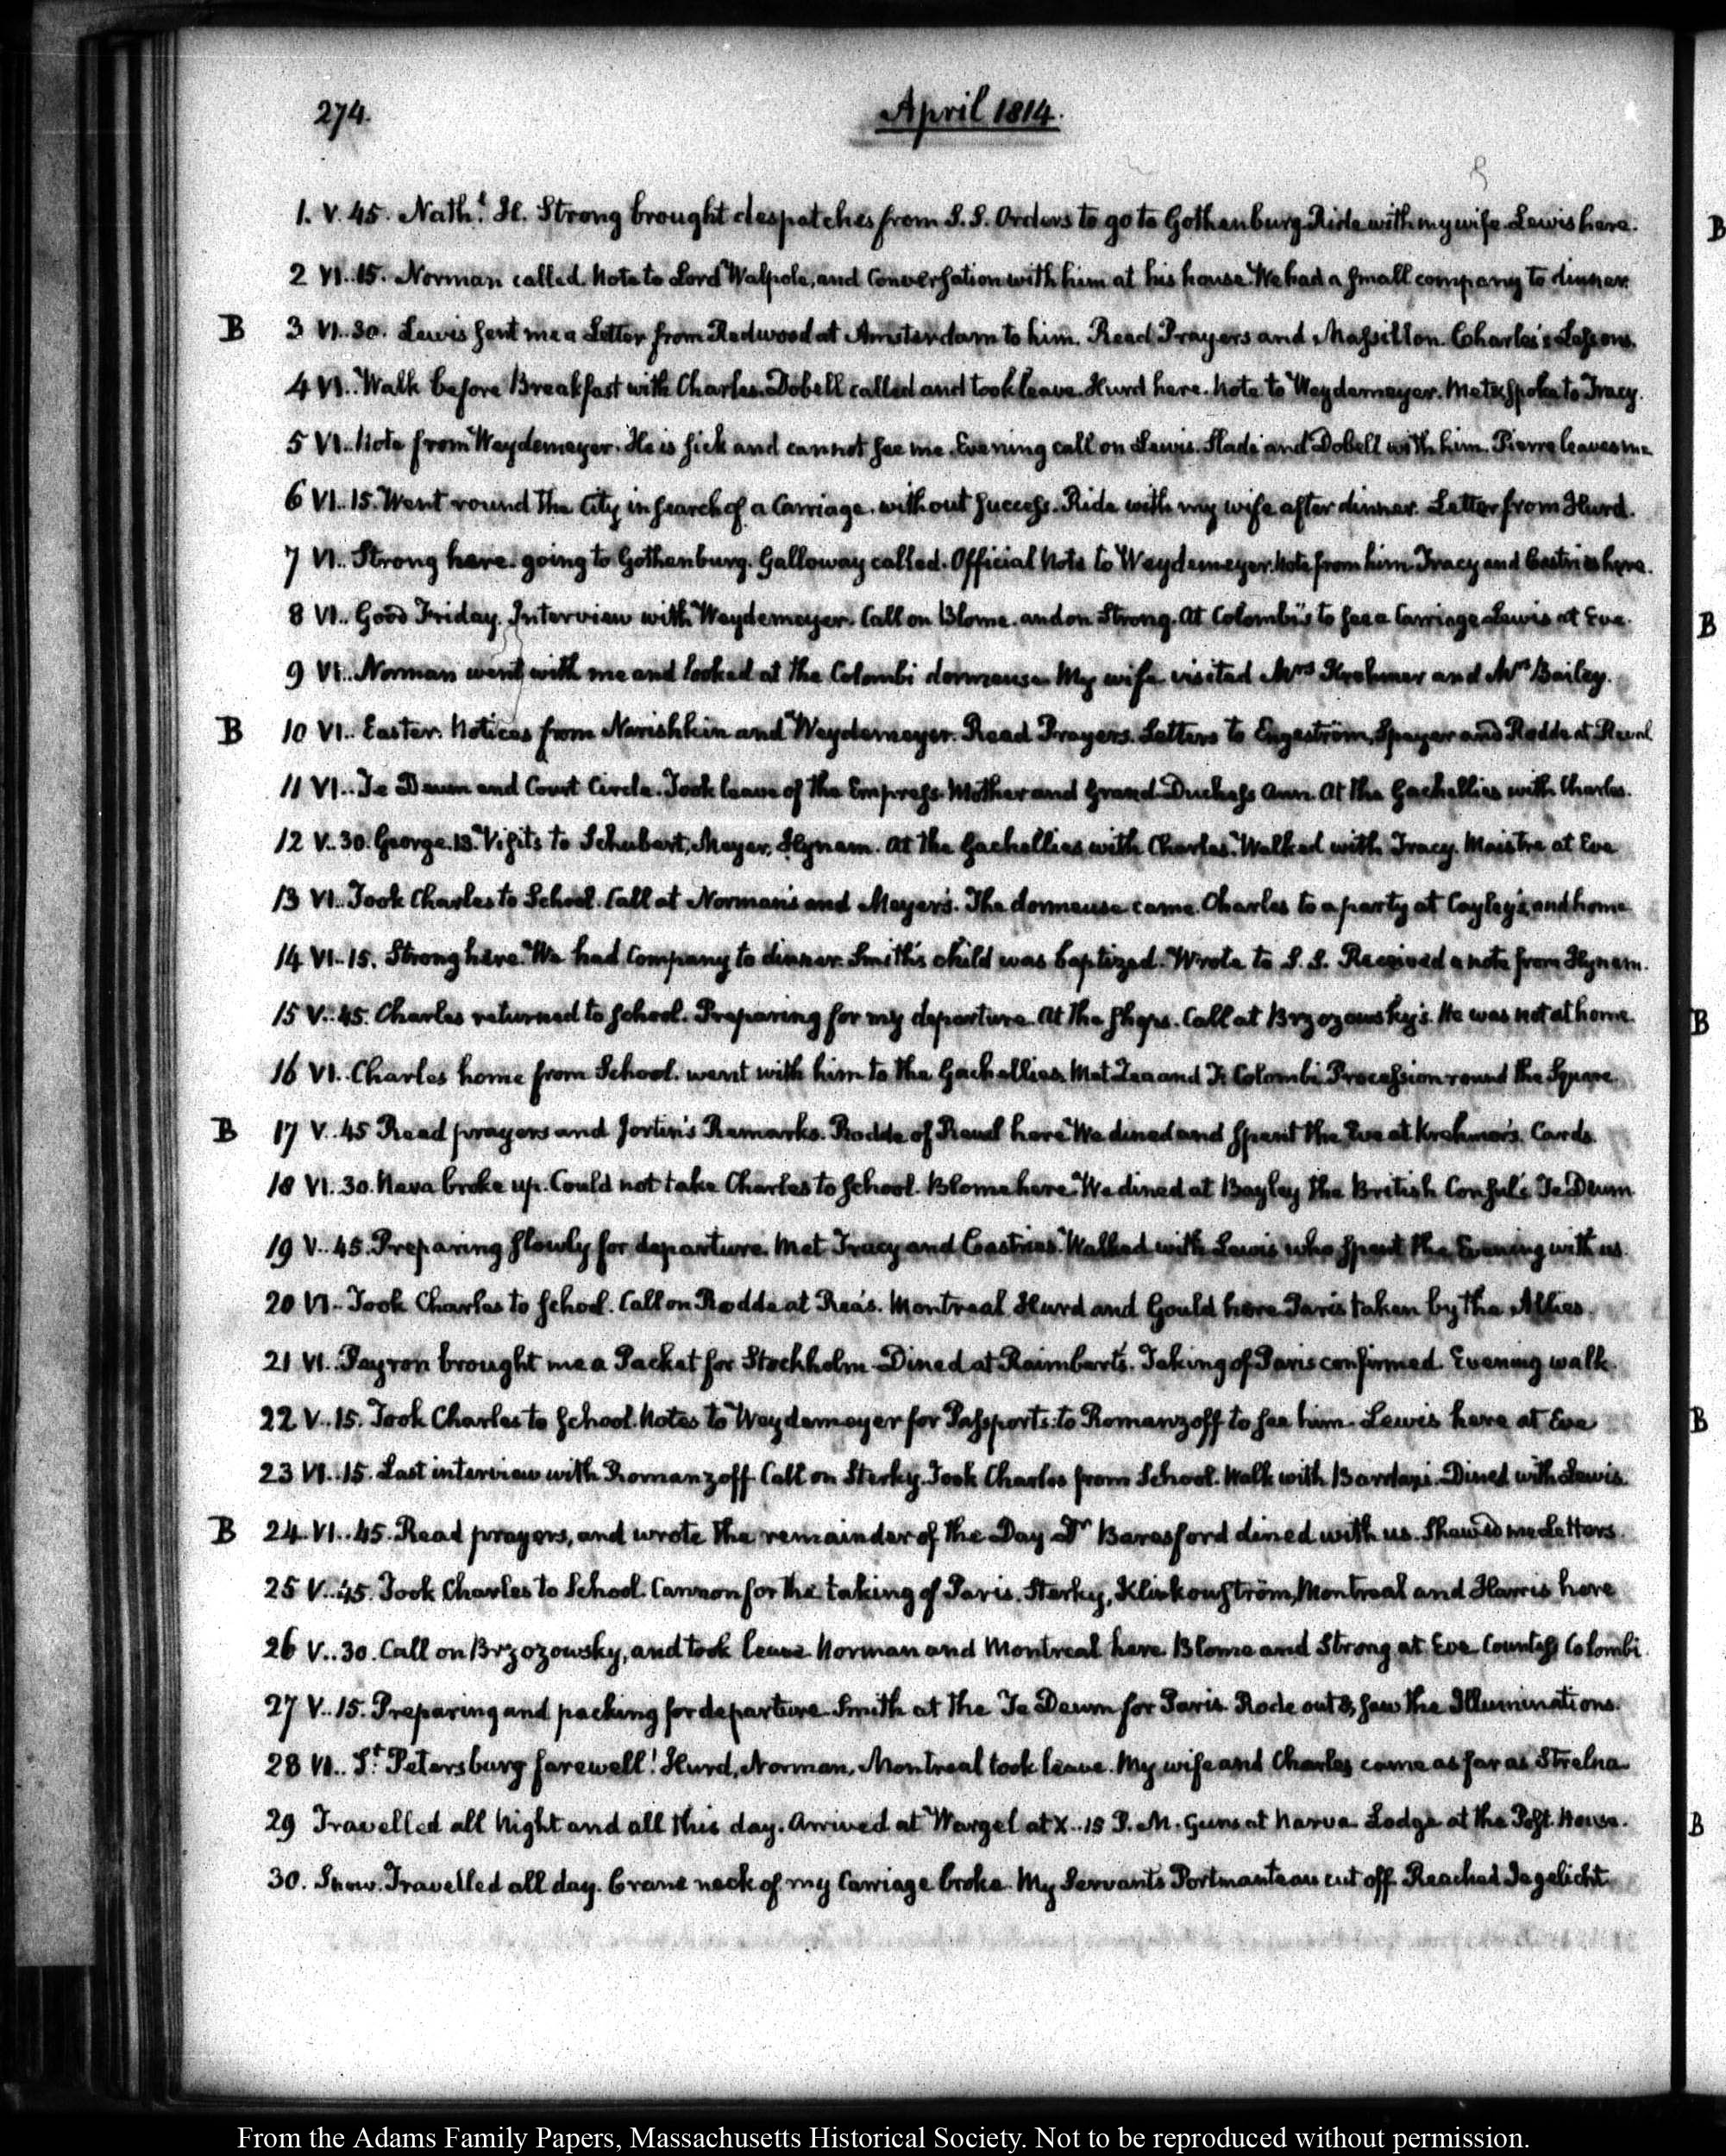 274.
April 1814.
1. V. 45. Nath.l H. Strong brought despatches from S.S. Orders to go to Gothenburg. Ride with my wife. Lewis here.
2 VI..15. Norman called. Note to Lord Walpole, and Conversation with him at his house. We had a small company to dinner.
B 3 VI..30. Lewis sent me a Letter from Redwood at Amsterdam to him. Read Prayers and Massillon. Charles's Lessons.
4 VI.. Walk before Breakfast with Charles. Dobell called and took leave. Hurd here. Note to Weydemeyer. Met & spoke to Tracy.
5 VI.. Note from Weydemeyer. He is sick and cannot see me. Evening call on Lewis. Slade and Dobell with him. Pierre leaves me
6 VI..15. Went round the City in search of a Carriage, without success. Ride with my wife after dinner. Letter from Hurd.
7 VI.. Strong here. going to Gothenburg. Galloway called. Official Note to Weydemeyer. Note from him. Tracy and Castries here.
8 VI.. Good Friday. Interview with Weydemeyer. Call on Blome. and on Strong. At Colombi's to see a Carriage. Lewis at Eve.
9 VI.. Norman went with me and looked at the Colombi dormeuse. My wife visited Mrs Krehmer and Mrs Bailey.
B 10 VI.. Easter. Notices from Narishkin and Weydemeyer. Read Prayers. Letters to Engeström, Speyer and Rodde at Reval
11 VI.. Te Deum and Court Circle. Took leave of the Empress-Mother and Grand-Duchess Ann. At the Gachellies with Charles.
12 V..30. George. 13. Visits to Schubert, Meyer, Hynam. At the Gachellies with Charles. Walked with Tracy. Maistre at Eve
13 VI.. Took Charles to School. Call at Norman's and Meyer's. The dormeuse came. Charles to a party at Cayley's, and home
14 VI..15. Strong here. We had Company to dinner. Smith's child was baptized. Wrote to S.S. Received a note from Hynam.
15 V..45. Charles returned to school. Preparing for my departure. At the shops. Call at Brzozowsky's. He was not at home.
16 VI.. Charles home from School. went with him to the Gachellies. Met Zea and F. Colombi. Procession round the Square.
B 17 V..45 Read prayers and Jortin's Remarks. Rodde of Reval here. We dined and spent the Eve at Krehmer's. Cards.
18 VI..30. Neva broke up. Could not take Charles to school. Blome here. We dined at Bayley the British Consul's. Te Deum
19 V..45. Preparing slowly for departure. Met Tracy and Castries. Walked with Lewis who spent the Evening with us.
20 VI.. Took Charles to school. Call on Rodde at Rea's. Montreal Hurd and Gould here. Paris taken by the Allies.
21 VI.. Payron brought me a Packet for Stockholm. Dined at Raimbert's. Taking of Paris confirmed. Evening walk.
22 V..15. Took Charles to School. Notes to Weydemeyer for Passports: to Romanzoff to see him. Lewis here at Eve
23 VI..15. Last interview with Romanzoff. Call on Sterky. Took Charles from School. Walk with Bardaxi. Dined with Lewis.
B 24. VI..45. Read prayers, and wrote the remainder of the Day. Dr Beresford dined with us. Shewed me Letters.
25 V..45. Took Charles to School. Cannon for the taking of Paris. Sterky, Klinkowström, Montreal and Harris here
26 V..30. Call on Brzozowsky, and took leave. Norman and Montreal here. Blome and Strong at Eve. Countess Colombi.
27 V..15. Preparing and packing for departure. Smith at the Te Deum for Paris. Rode out & saw the Illuminations.
28 VI.. St. Petersburg farewell! Hurd, Norman, Montreal took leave. My wife and Charles came as far as Strelna
29 Travelled all Night and all this day. Arrived at Wargel at X..15 P.M. Guns at Narva. Lodge at the Post House.
30. Snow. Travelled all day. Crane neck of my Carriage broke. My Servant's Portmanteau cut off. Reached Jegelicht.
B
B
B
B
B
From the Adams Family Papers, Massachusetts Historical Society. Not to be reproduced without permission.